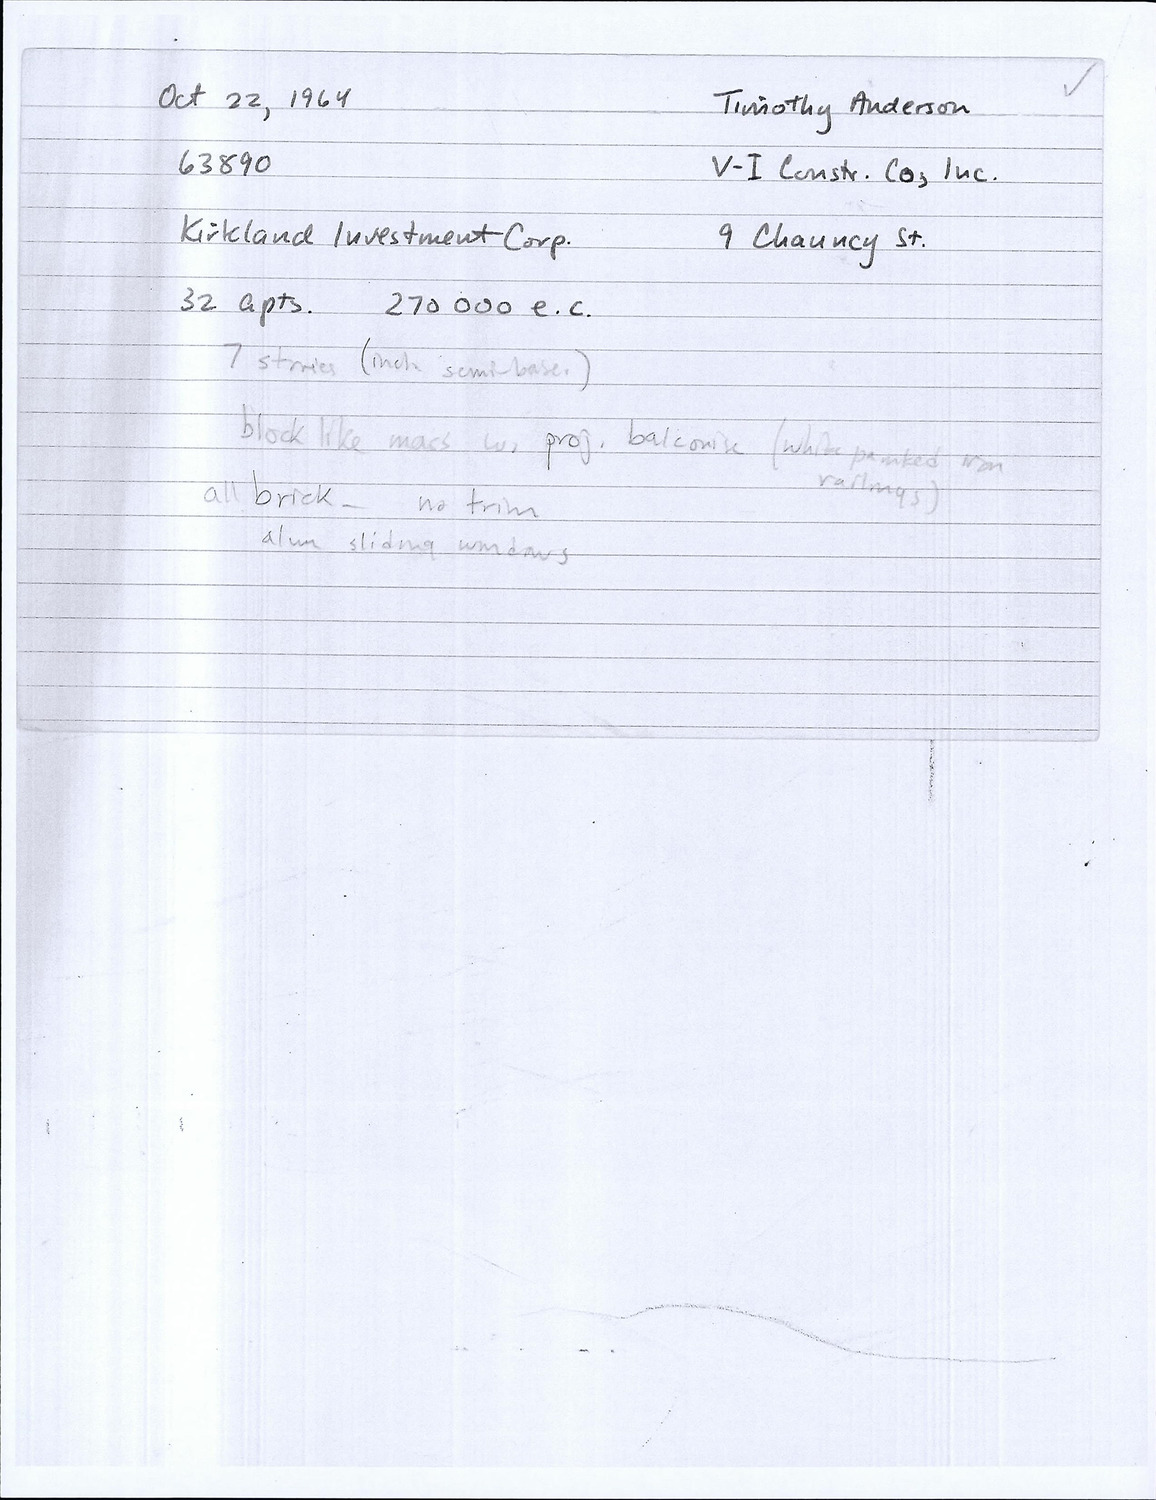 Oct 22, 1964
Timothy Anderson
63890
V-I Constr. Co, Inc.
Kirkland Investment Corp.
9 Chauncy St.
32 apts. 270 000 e.c.
7 stories (incl. semi-base.)
block like mass w, proj. balconies (white painted iron
railings)
all brick - no trim
alum sliding windows